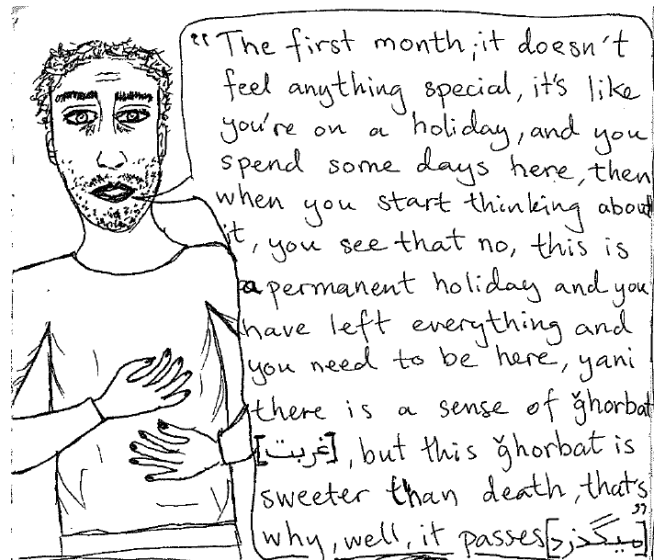 "The first month, it doesn't
feel anything special, it's like
you're on a holiday, and you
spend some days here, then
when you start thinking about
it, you see that no, this is
a permanent holiday and you
have left everything and
you need to be here, yani
there is a sense of ğhorbat
[غربت], but this ğhorbat is
sweeter than death, that's
why, well, it passes [میگذرد]"